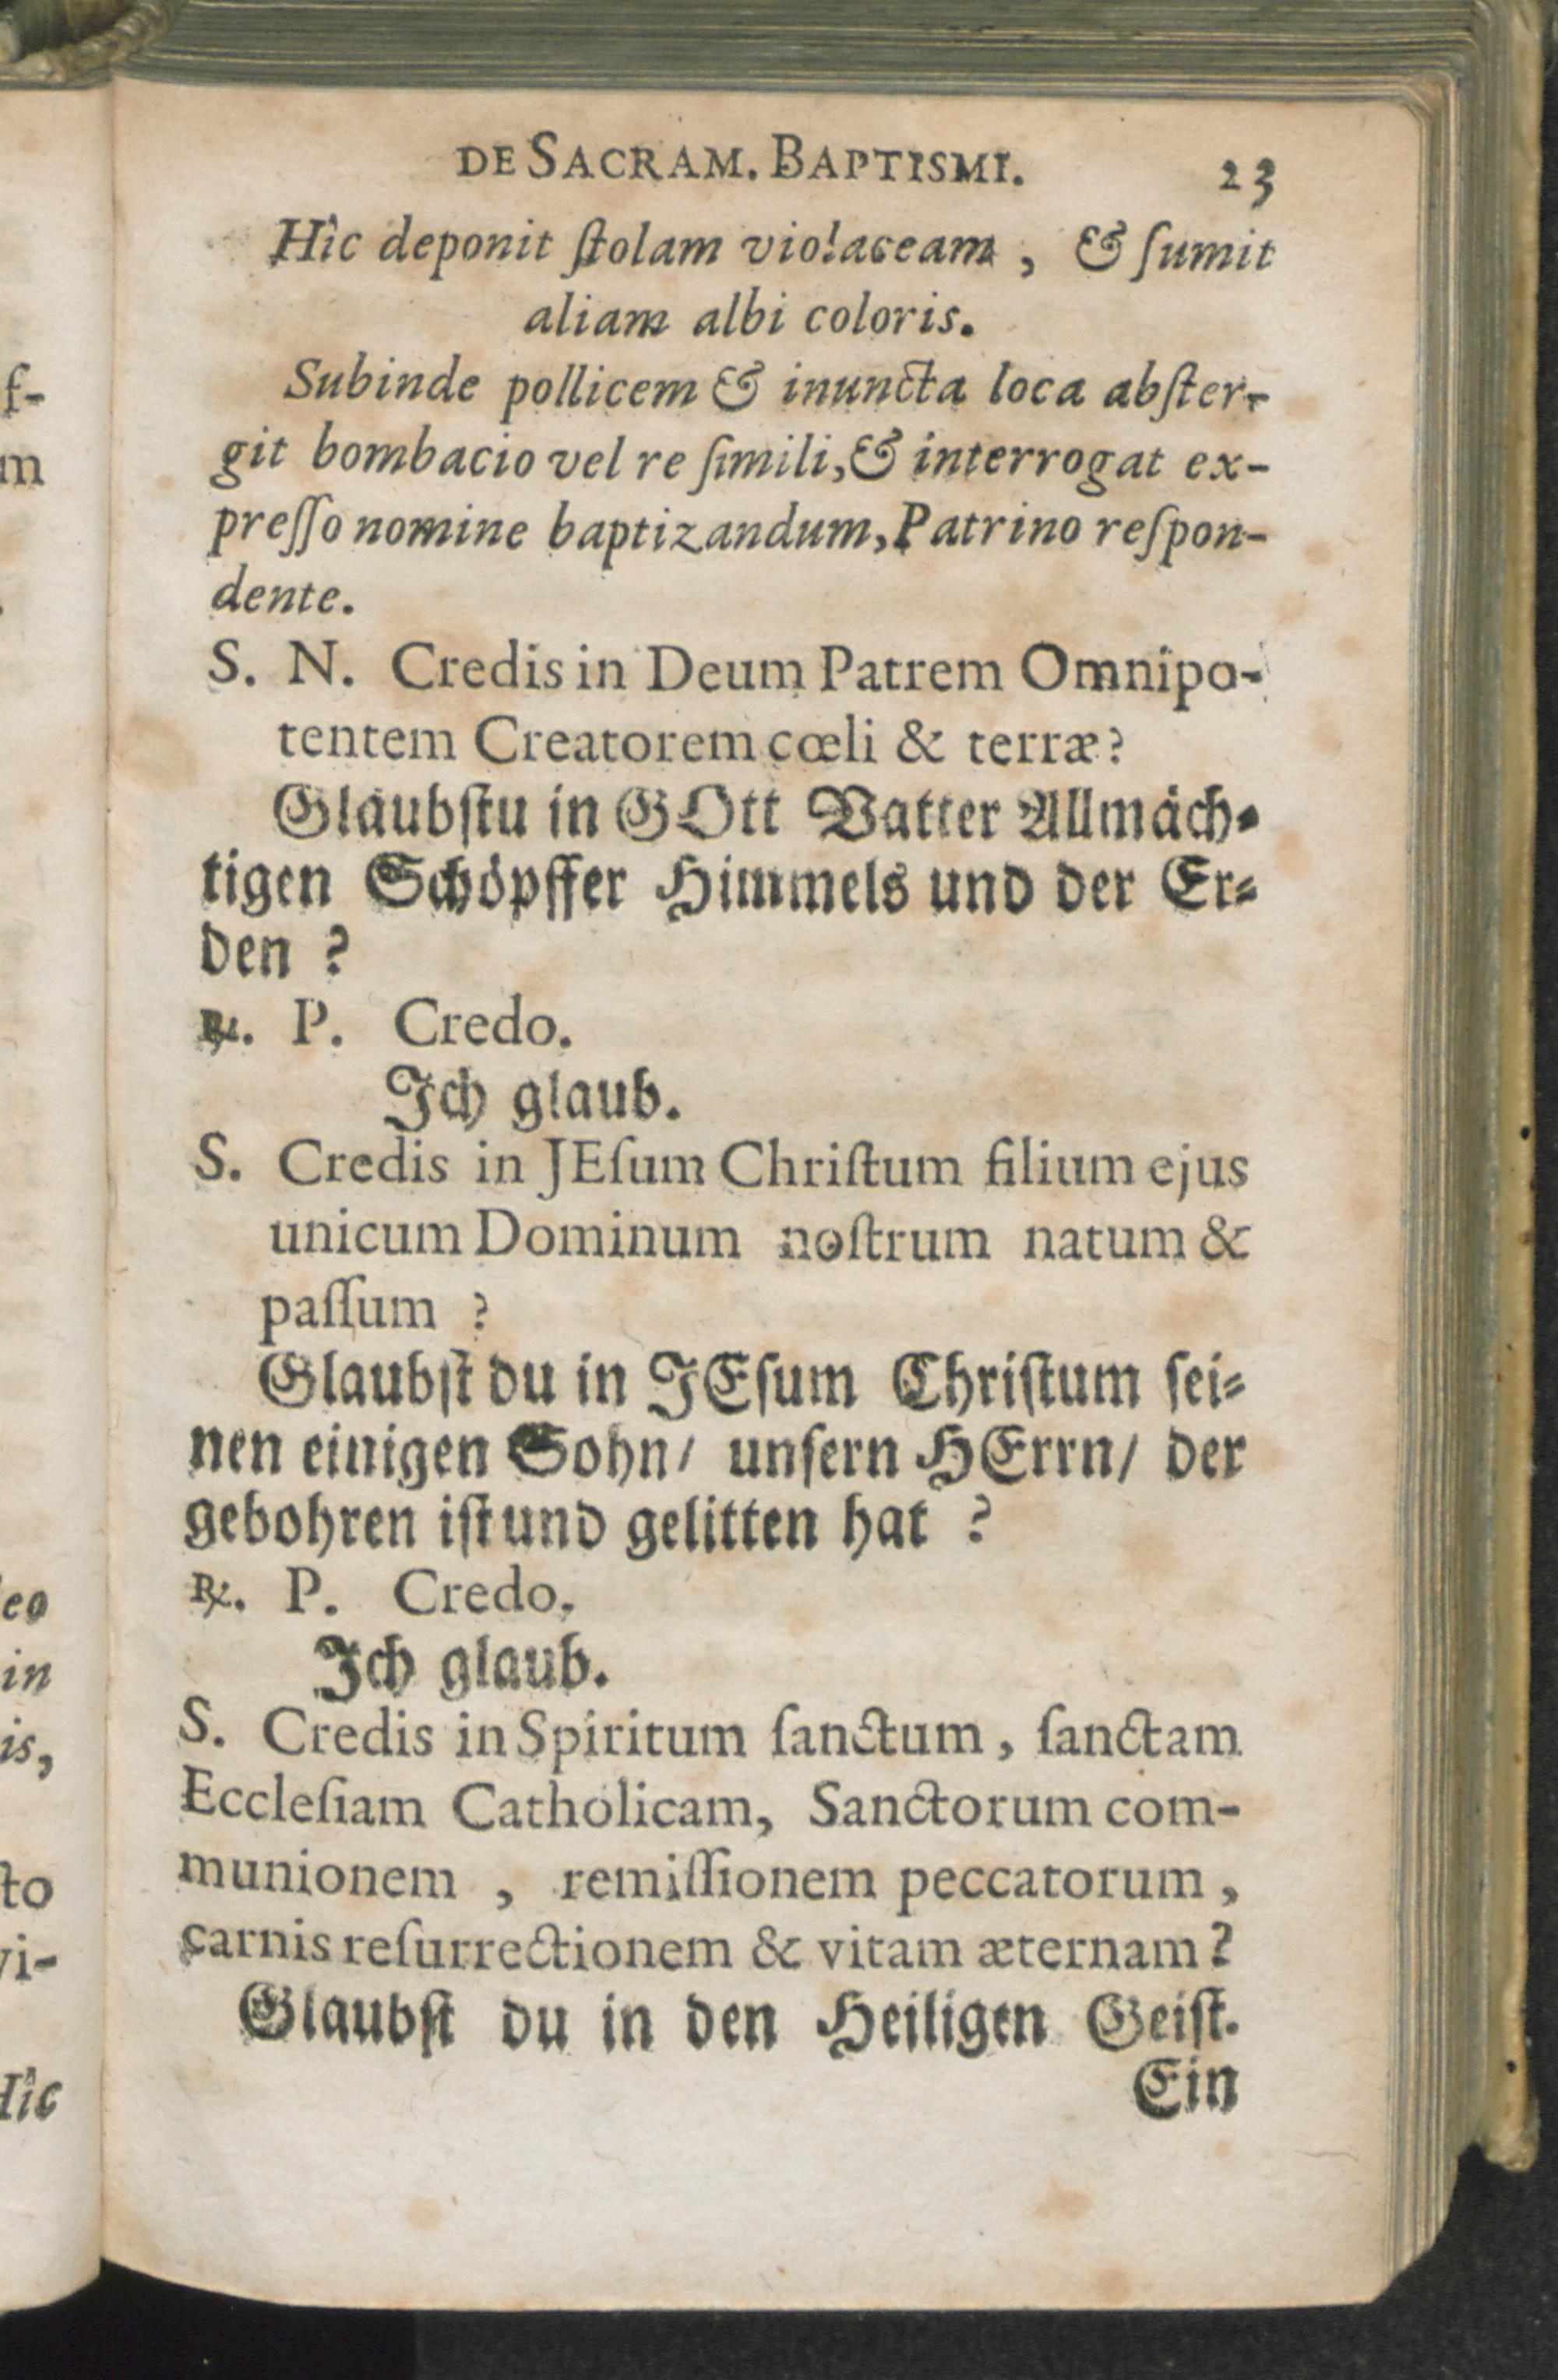 DE SACRAM. BAPTISMI. 23
Hîc deponit ſtolam violaceam, & ſumit
aliam albi coloris.
Subinde pollicem & inuncta loca abſter-
git bombacio vel re ſimili, & interrogat ex-
preſſo nomine baptizandum, Patrino reſpon-
dente.
S. N. Credis in Deum Patrem Omnipo-
tentem Creatorem cœli & terræ?
Glaubſtu in GOtt Vatter Allmäch-
tigen Schöpffer Himmels und der Er-
den ?
℞. P. Credo.
Ich glaub.
S. Credis in JEſum Chriſtum filium ejus
unicum Dominum noſtrum natum &
paſſum ?
Glaubſt du in JEſum Chriſtum ſei-
nen einigen Sohn/ unſern HErrn/ der
gebohren iſt und gelitten hat ?
℞. P. Credo.
Ich glaub.
S. Credis in Spiritum ſanctum, ſanctam
Eccleſiam Catholicam, Sanctorum com-
munionem, remiſſionem peccatorum,
carnis reſurrectionem & vitam æternam?
Glaubſt du in den Heiligen Geiſt.
Ein
f-
m
eo
in
is,
ſto
vi-
Hîc